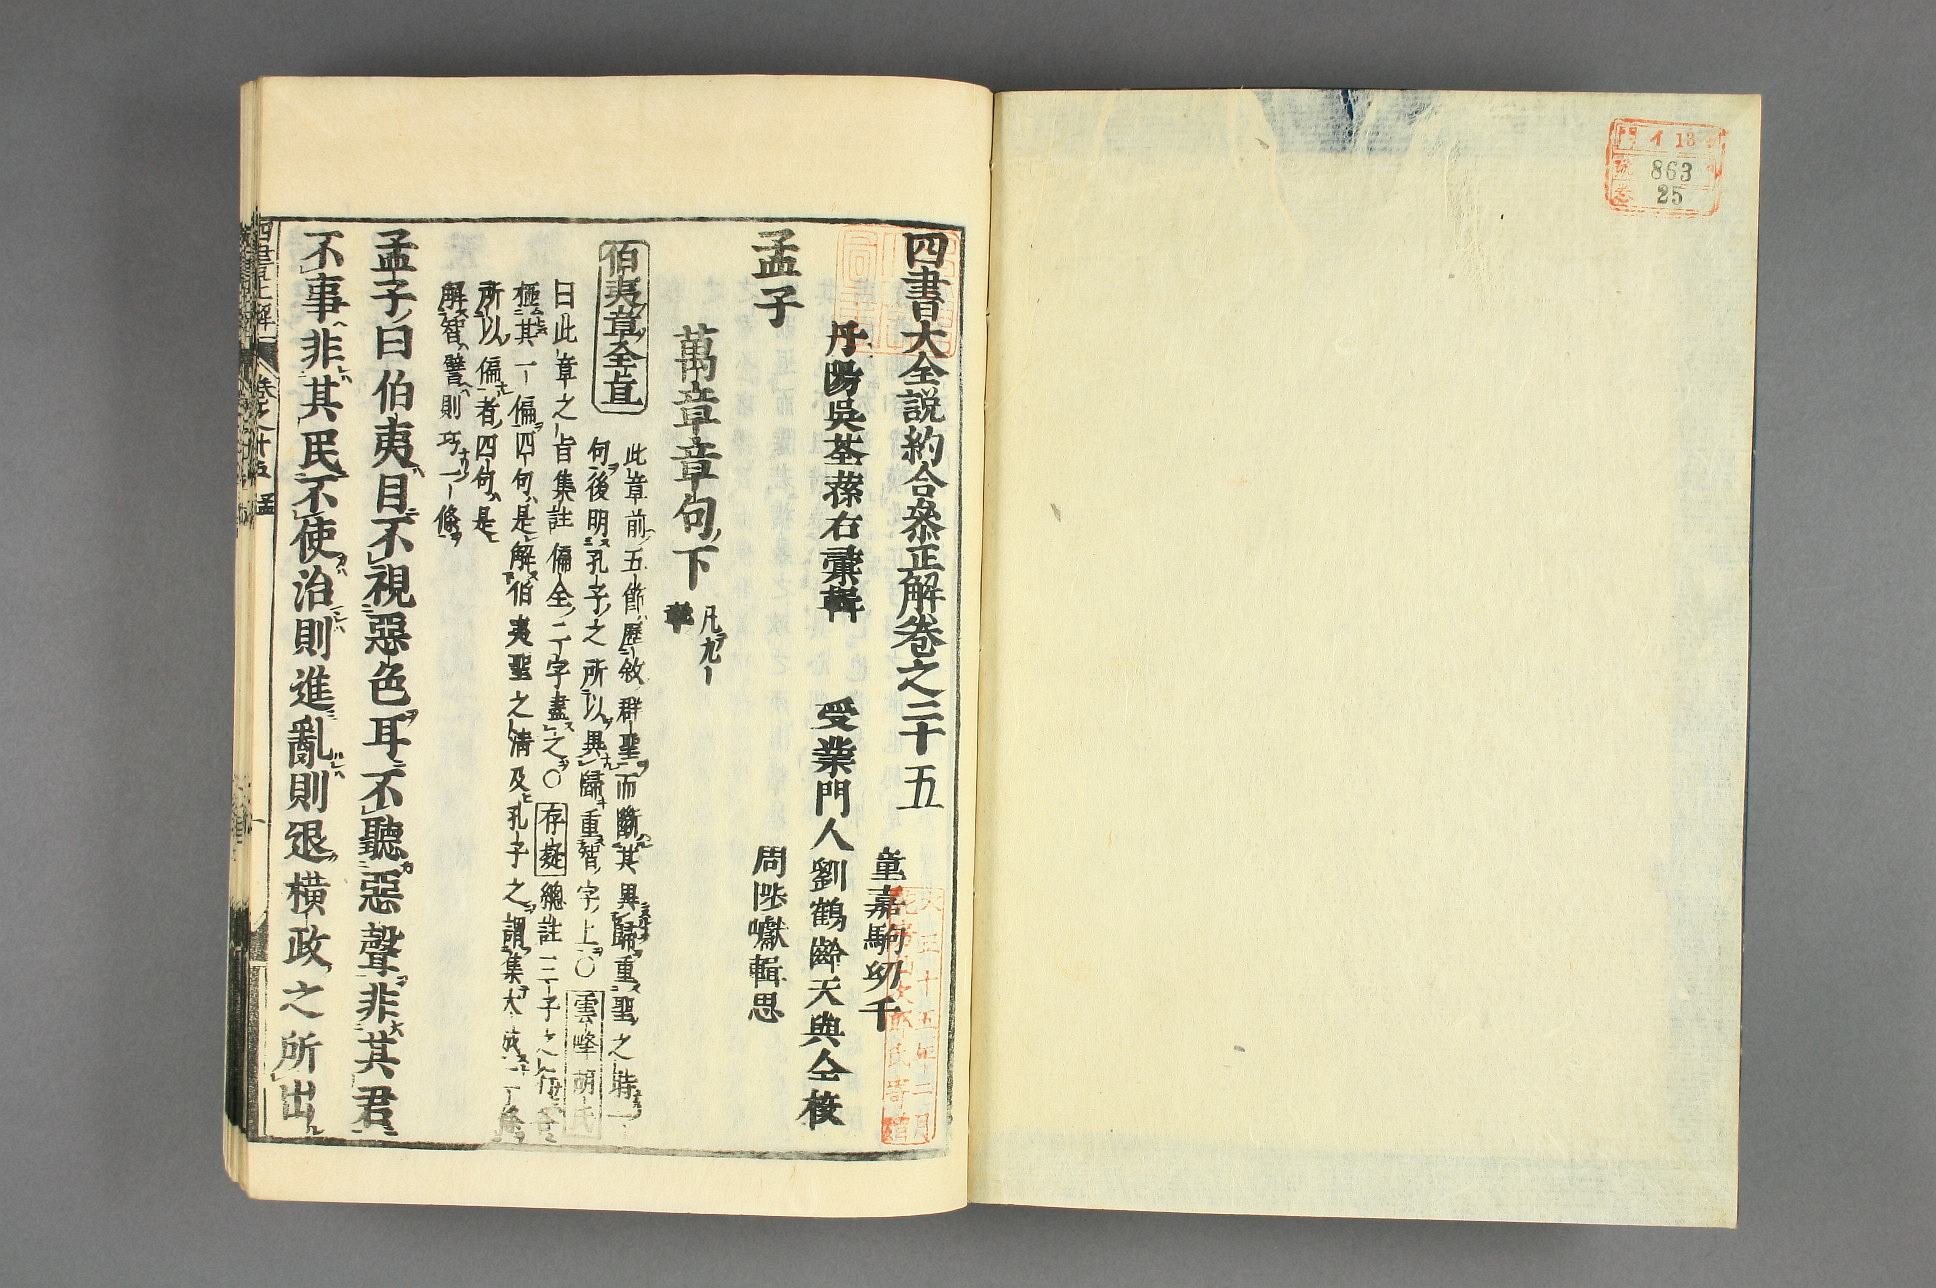 門 イ 13
號 863
卷 25
四書大全說約合參正解卷之二十五
童嘉駒㓜千
丹陽吳荃蓀右彚輯 受業門人劉鶴齡天與仝校
孟子 周陞獻輯思
萬章章句下 凡九章
伯夷章全旨
此章前五節歷敘群聖而斷其異歸重聖之時一
句後明孔子之所以異歸重智字上〇雲峰胡氏
曰此章之旨集註偏全二字盡之〇存疑總註三子之行各
極其一偏四句是解伯夷聖之清及孔子之謂集大成一條
所以偏者四句是
解智譬則巧一條
孟子曰伯夷目不視惡色耳不聽惡聲非其君
不事非其民不使治則進亂則退橫政之所出
卷之廿五 孟
大正十五年二月